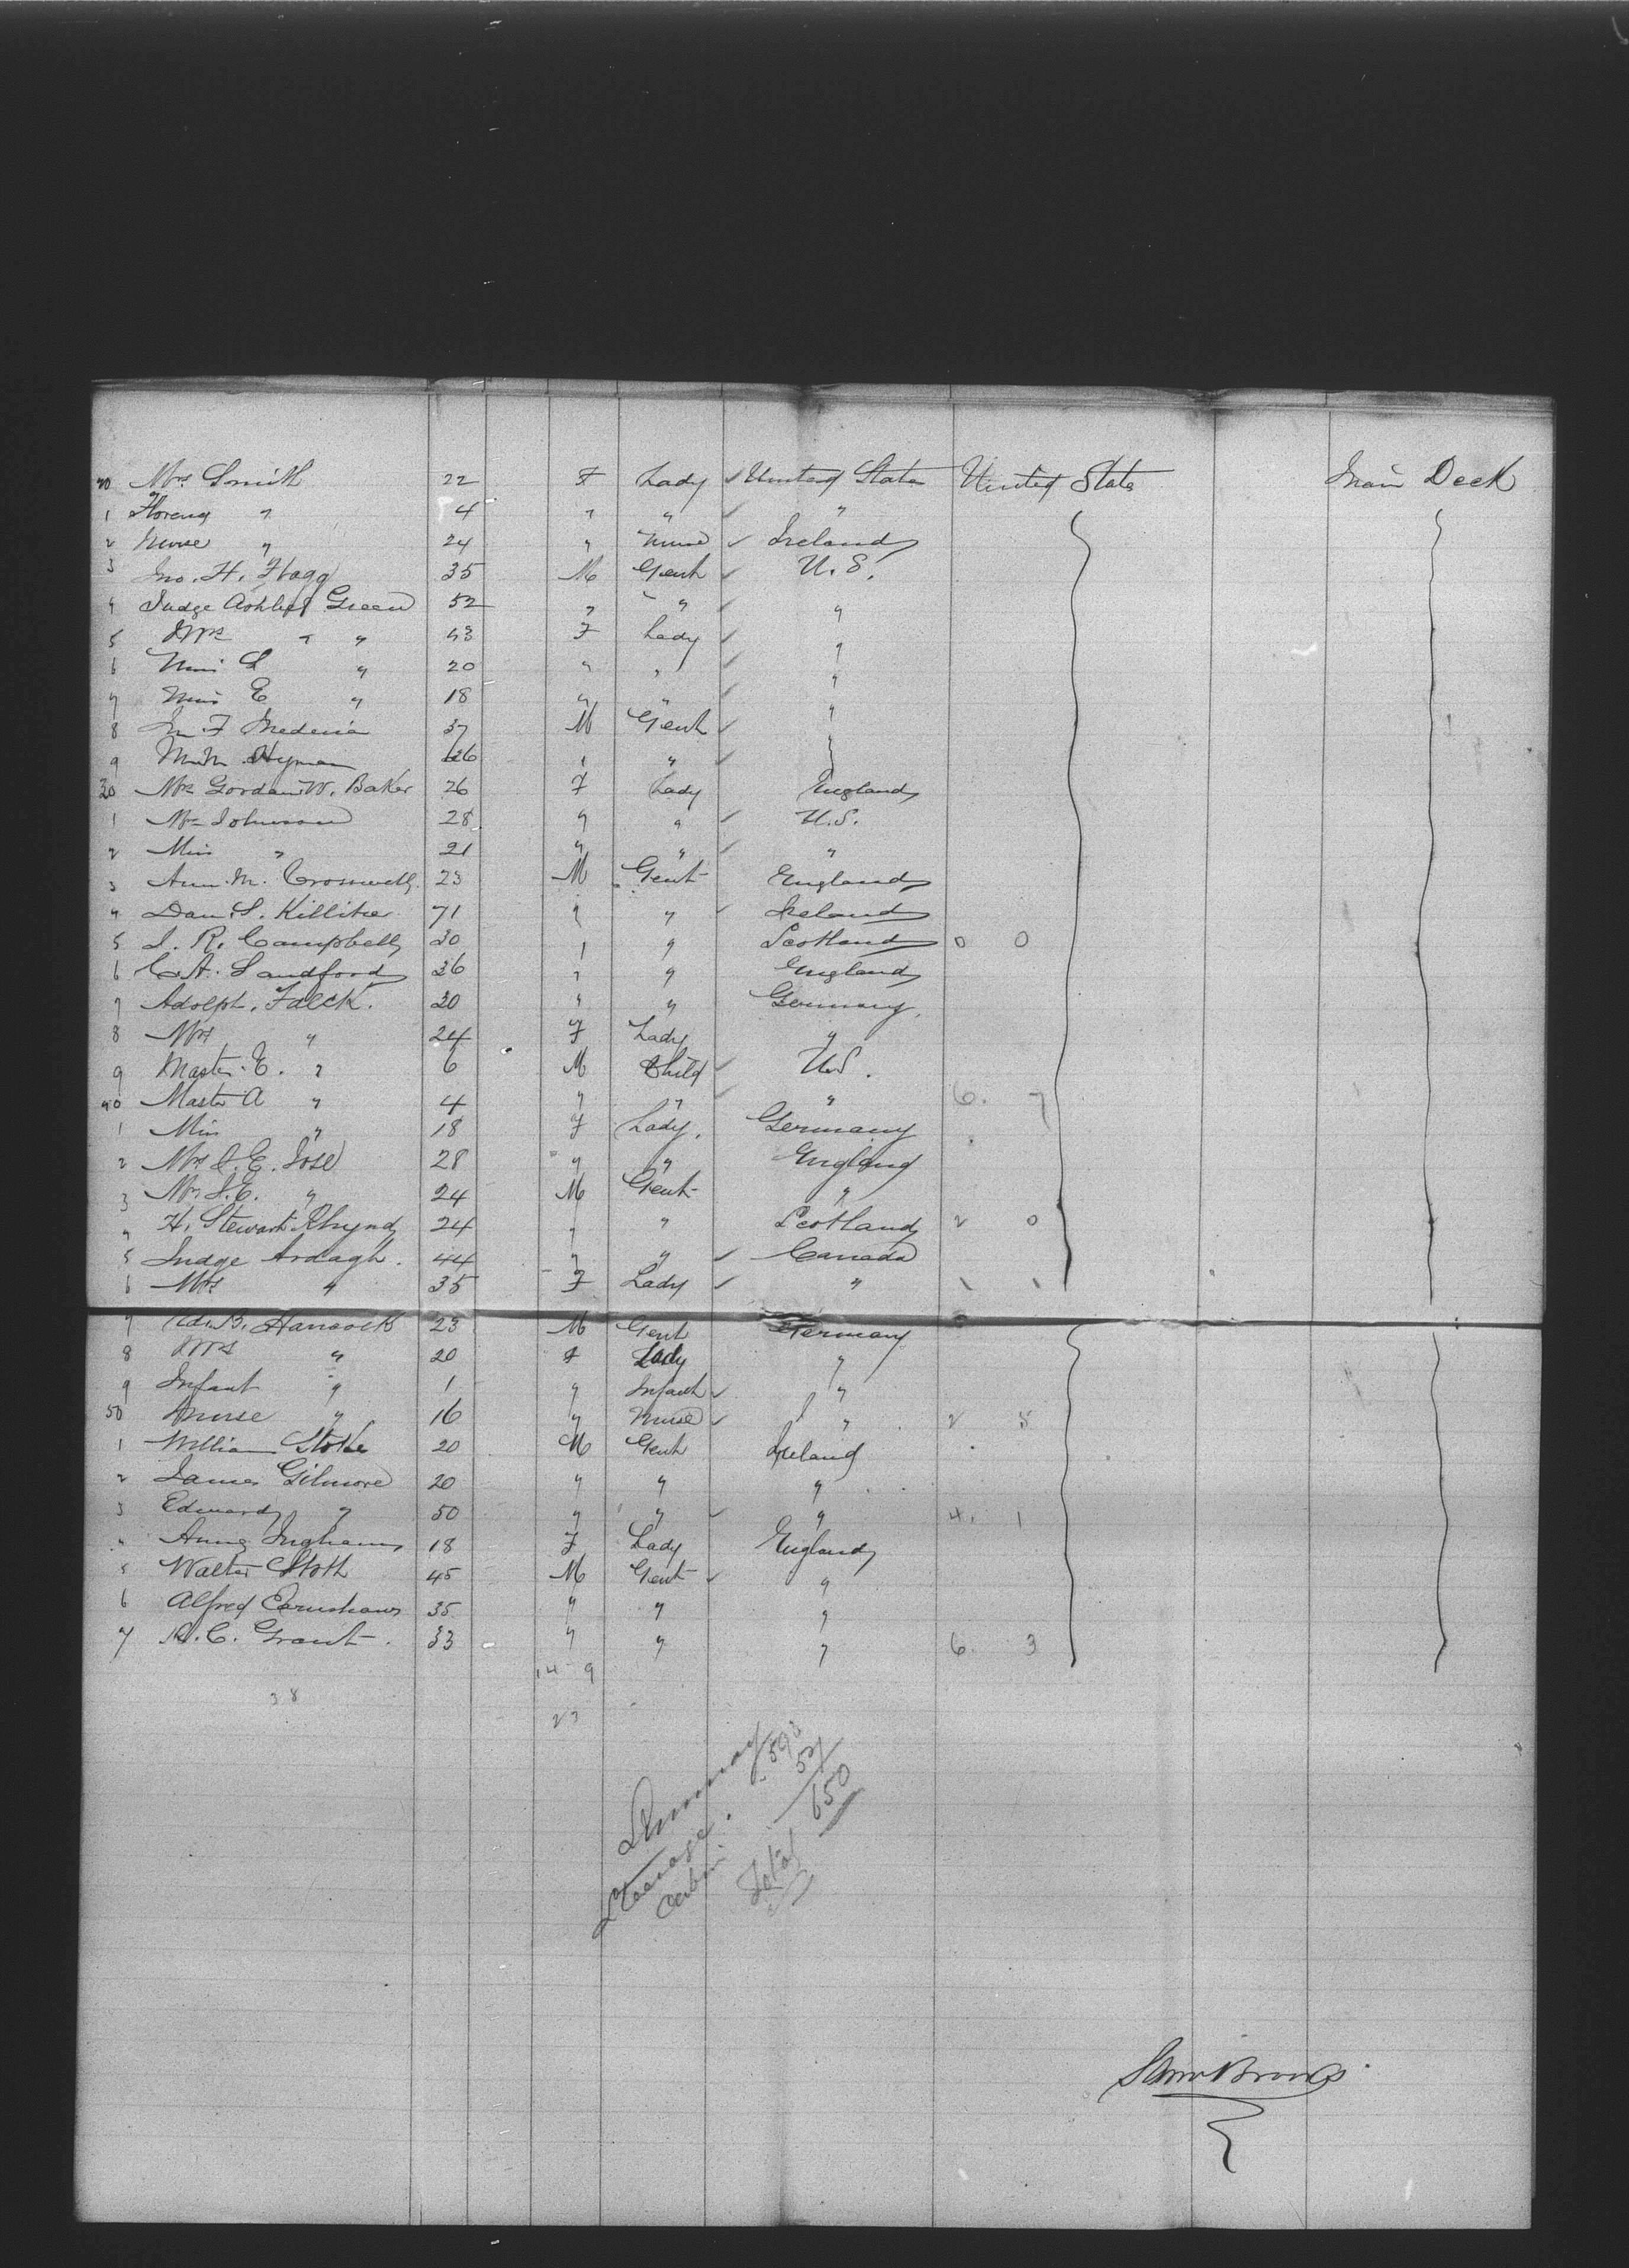 20 Mrs Smith 22 F Lady ✓ United States United States Main Deck
1 " 4 " " ✓ "
2 Nurse " 24 " Nurse ✓ Ireland
3 Jno. H. Flagg 35 M Gent ✓ U.S.
4 Judge Ashbel Green 52 " " ✓ "
5 Mrs " " 43 F Lady ✓ "
6 Miss " 20 " " ✓ "
7 Miss E " 18 " " ✓ "
8 37 M Gent ✓ "
9 Hyman 26 " " ✓ "
30 Mrs Gordan W. Baker 26 F Lady England
1 Mrs Johnson 28 " " ✓ U.S.
2 Miss " 21 " " ✓ "
3 M. Cromwell 23 M Gent England
4 Dan. S. 71 " " ✓ Ireland
5 J. R. Campbell 30 " " Scotland 0 0
6 C. A. Sandford 26 " " England
7 Adolph. Falck. 30 " " Germany.
8 Mrs " 24 F Lady "
9 Master. E. " 6 M Child ✓ U.S.
40 Master A " 4 " " ✓ " 6. 7
1 Miss " 18 F Lady. Germany
2 Mrs J. E. Jose 28 " " England
3 Mr J. E. " 24 M Gent "
4 H. Stewart Rhynd 24 " " Scotland 2 0
5 Judge Ardagh. 44 " " ✓ Canada
6 Mrs " 35 F Lady ✓ " 1 1
7 B. Hancock 23 M Gent Germany
8 Mrs " 20 F Lady "
9 Infant " 1 " Infant ✓ "
50 Nurse " 16 " Nurse ✓ " 2 5
1 William 20 M Gent Ireland
2 James Gilmore 20 " " "
3 Edward " 50 " " ✓ " 4. 1
" Ingham 18 F Lady England
5 Walter 45 M Gent ✓ "
6 Alfred Earnshaw 35 " " "
7 C. Grant. 33 " " " 6. 3
14 9
38
23
Summary
Steerage. 593
Cabin 57
Total 650